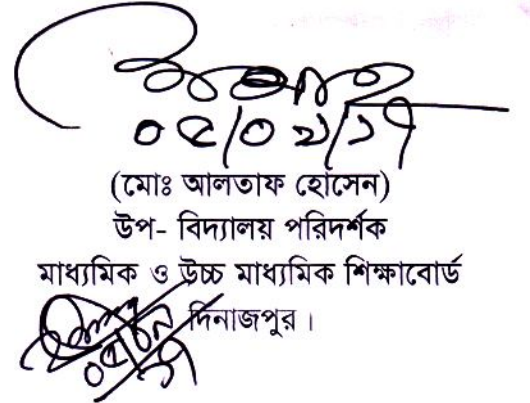 ০৫/০২/১৭
(মোঃ আলতাফ হোসেন)
উপ- বিদ্যালয় পরিদর্শক
মাধ্যমিক ও উচ্চ মাধ্যমিক শিক্ষাবোর্ড
দিনাজপুর।